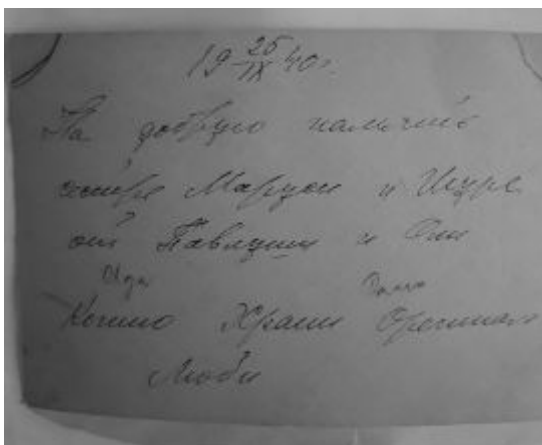 19 26/IX 40 г.
На добрую память
сестре Марусе и Шуре
от Павлуши и Оли
Olga
Копию Храни
Люби